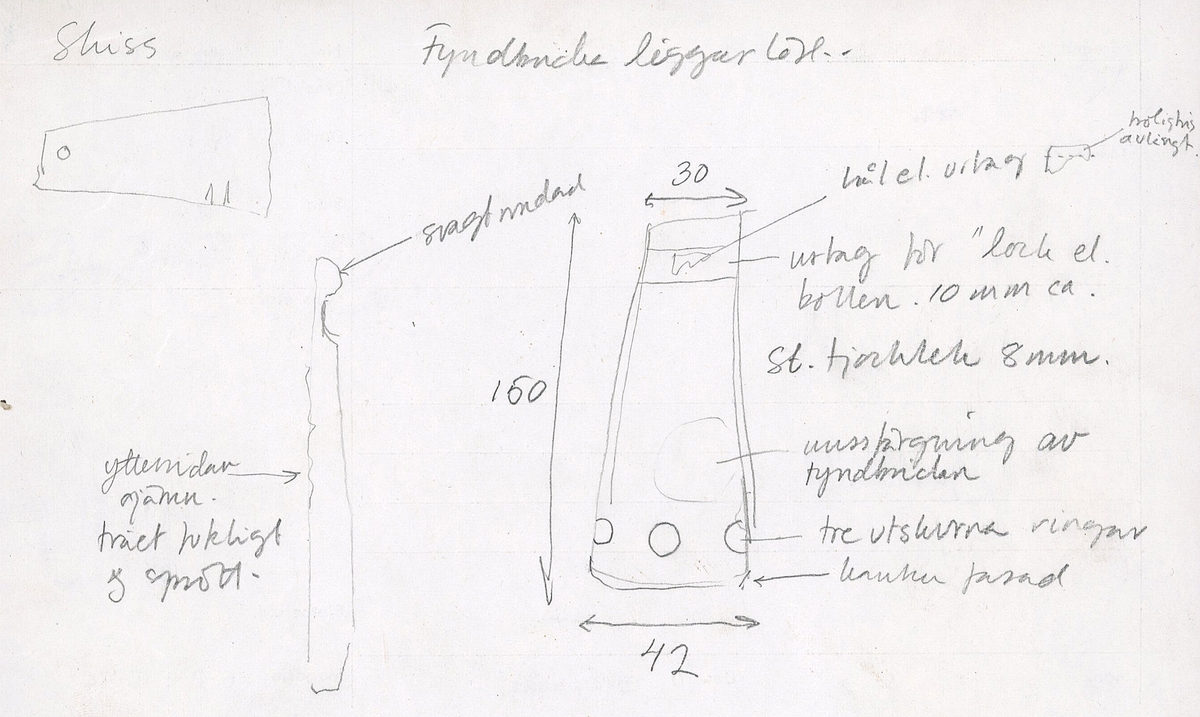 Skiss
Fyndbricka liggar löst..
troligtvis
avlångt.
hål el. urtag
30
svagt rundad
urtag för "lock el.
botten. 10 mm ca.
St. tjocklek 8 mm.
150
missfärgning av
fyndbrickan
yttersidan
ojämn.
träet fuktigt
& sprött.
tre utskurna ringar
kanten fasad
42